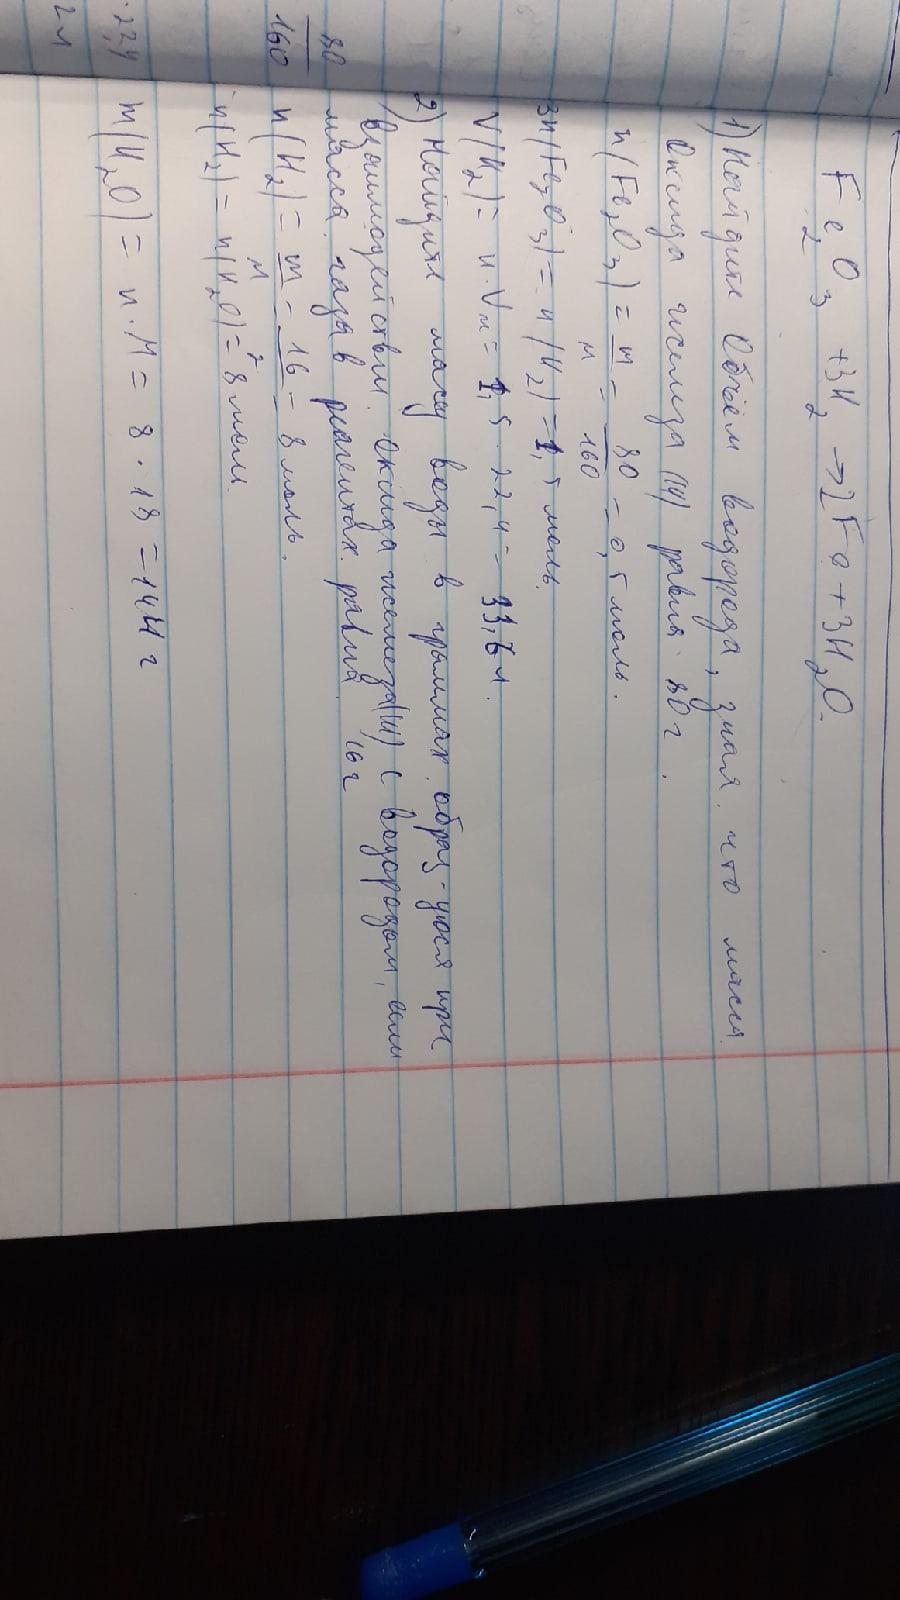 Fe2O3 +3H2 → 2Fe + 3H2O.
1) Найдите Объём водорода, зная. что масса
Оксида железа (III) равна 80 г.
n(Fe2O3) = m/M = 80/160 = 0,5 моль.
3n(Fe2O3) = n(H2) = 1,5 моль.
V(H2) = n · Vm = 1,5 · 22,4 = 33,6 л.
2) Найдите массу воды в граммах. образ-уюся при
взаимодействии. Оксида железа(III) с водородом, если
масса. газа в реагентах. равна 16 г
n(H2) = m/M = 16/2 = 8 моль.
n(H2) = n(H2O) = 8 моль.
m(H2O) = n · M = 8 · 18 = 144 г
80
160
· 22,4
2 л